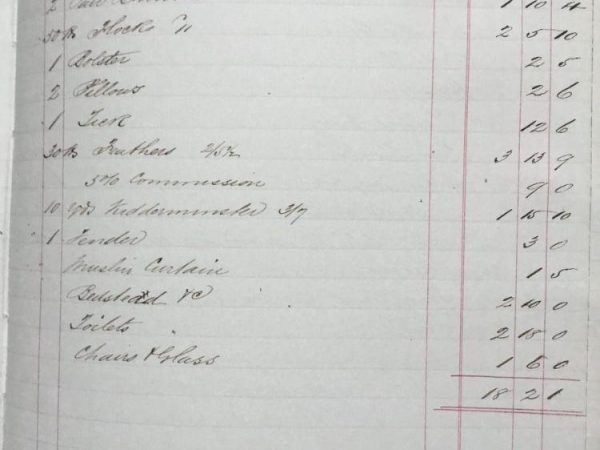 2
50 lb Flocks @ 11 2 5 10
1 Bolster 2 5
2 Pillows 2 6
1 Tick 12 6
30 lb Feathers 2/5½ 3 13 9
5% Commission 9 0
10 yds Kidderminster 3/7 1 15 10
1 Fender 3 0
Muslin Curtain 1 5
Bedstead &c 2 10 0
Toilets 2 15 0
Chairs & Glass 1 6 0
18 2 1